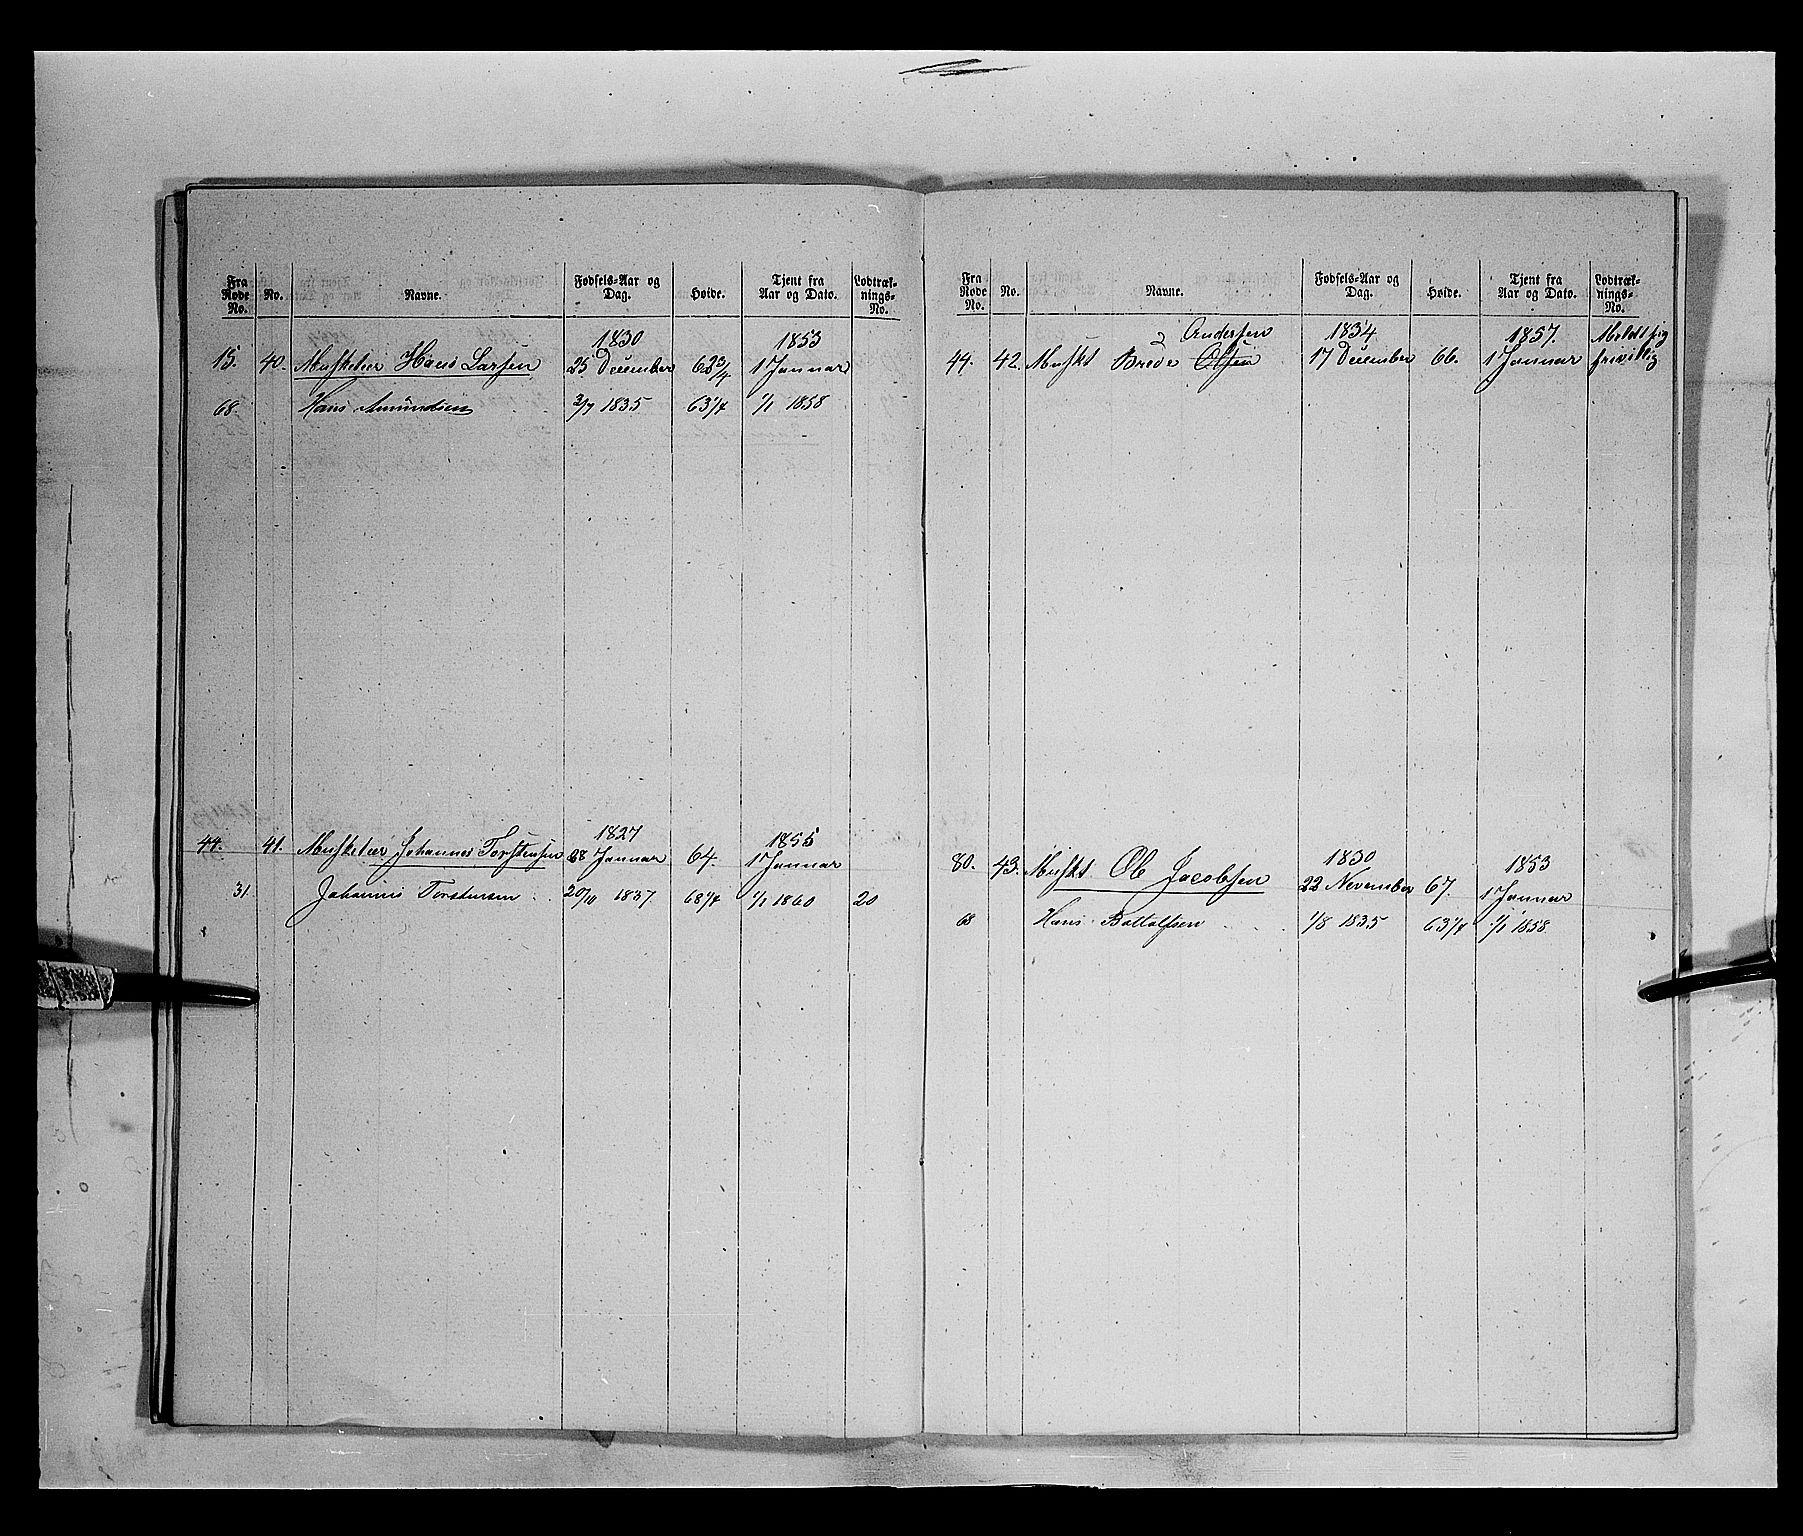 Fra Rode No. No. Navne. Fødsels-Aar og Dag. Høide. Tjent fra Aar og Dato. Lodtræk-nings-No.
1830 1853
15. 40. Musketeer Hans Larsen 25 December 62 3/4 1 Januar
68. Hans Amundsen 3/7 1835 63 1/4 1/1 1858
1827 1855
44. 41. Musketeer Johannes Torstensen 28 Januar 64. 1 Januar
31. Johannes Torstensen 20/10 1837. 68 1/4 1/1 1860 20
Fra Rode No. No. Navne. Fødsels-Aar og Dag. Høide. Tjent fra Aar og Dato. Lodtræk-nings-No.
2 Andersen 1834 1857. Meldt sig
44. 42. Muskt Brede Olsen 17 December 66. 1 Januar frivillig
1830 1853
80. 43. Muskt Ole Jacobsen 22 November 67. 1 Januar
68 Hans Bottolfsen 1/8 1835 63 1/4 1/1 1858